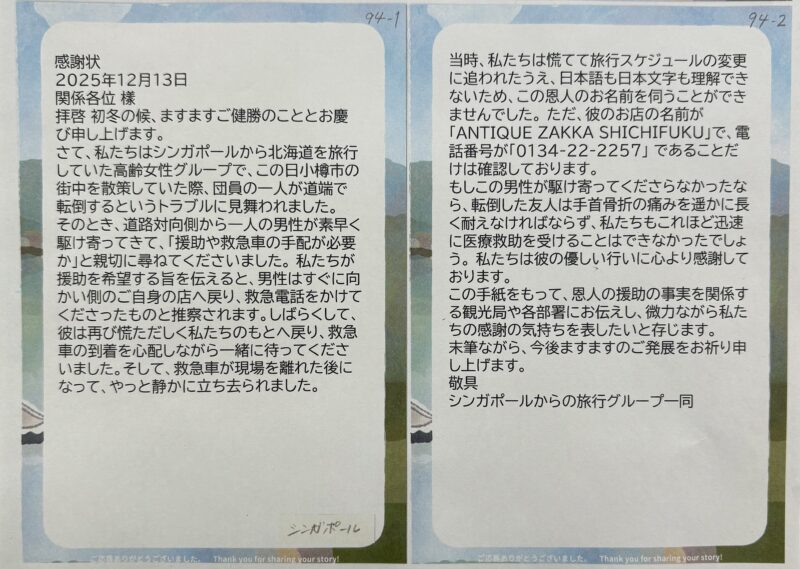 94-1
感謝状
2025年12月13日
関係各位 様
拝啓 初冬の候、ますますご健勝のこととお慶
び申し上げます。
さて、私たちはシンガポールから北海道を旅行
していた高齢女性グループで、この日小樽市の
街中を散策していた際、団員の一人が道端で
転倒するというトラブルに見舞われました。
そのとき、道路対向側から一人の男性が素早く
駆け寄ってきて、「援助や救急車の手配が必要
か」と親切に尋ねてくださいました。私たちが
援助を希望する旨を伝えると、男性はすぐに向
かい側のご自身の店へ戻り、救急電話をかけて
くださったものと推察されます。しばらくして、
彼は再び慌ただしく私たちのもとへ戻り、救急
車の到着を心配しながら一緒に待ってくださ
いました。そして、救急車が現場を離れた後に
なって、やっと静かに立ち去られました。
シンガポール
ご応募ありがとうございました。 Thank you for sharing your story!
94-2
当時、私たちは慌てて旅行スケジュールの変更
に追われたうえ、日本語も日本文字も理解でき
ないため、この恩人のお名前を伺うことができ
ませんでした。ただ、彼のお店の名前が
「ANTIQUE ZAKKA SHICHIFUKU」で、電
話番号が「0134-22-2257」 であることだ
けは確認しております。
もしこの男性が駆け寄ってくださらなかったな
ら、転倒した友人は手首骨折の痛みを遥かに長
く耐えなければならず、私たちもこれほど迅速
に医療救助を受けることはできなかったでしょ
う。私たちは彼の優しい行いに心より感謝して
おります。
この手紙をもって、恩人の援助の事実を関係す
る観光局や各部署にお伝えし、微力ながら私た
ちの感謝の気持ちを表したいと存じます。
末筆ながら、今後ますますのご発展をお祈り申
し上げます。
敬具
シンガポールからの旅行グループ一同
ご応募ありがとうございました。 Thank you for sharing your story!